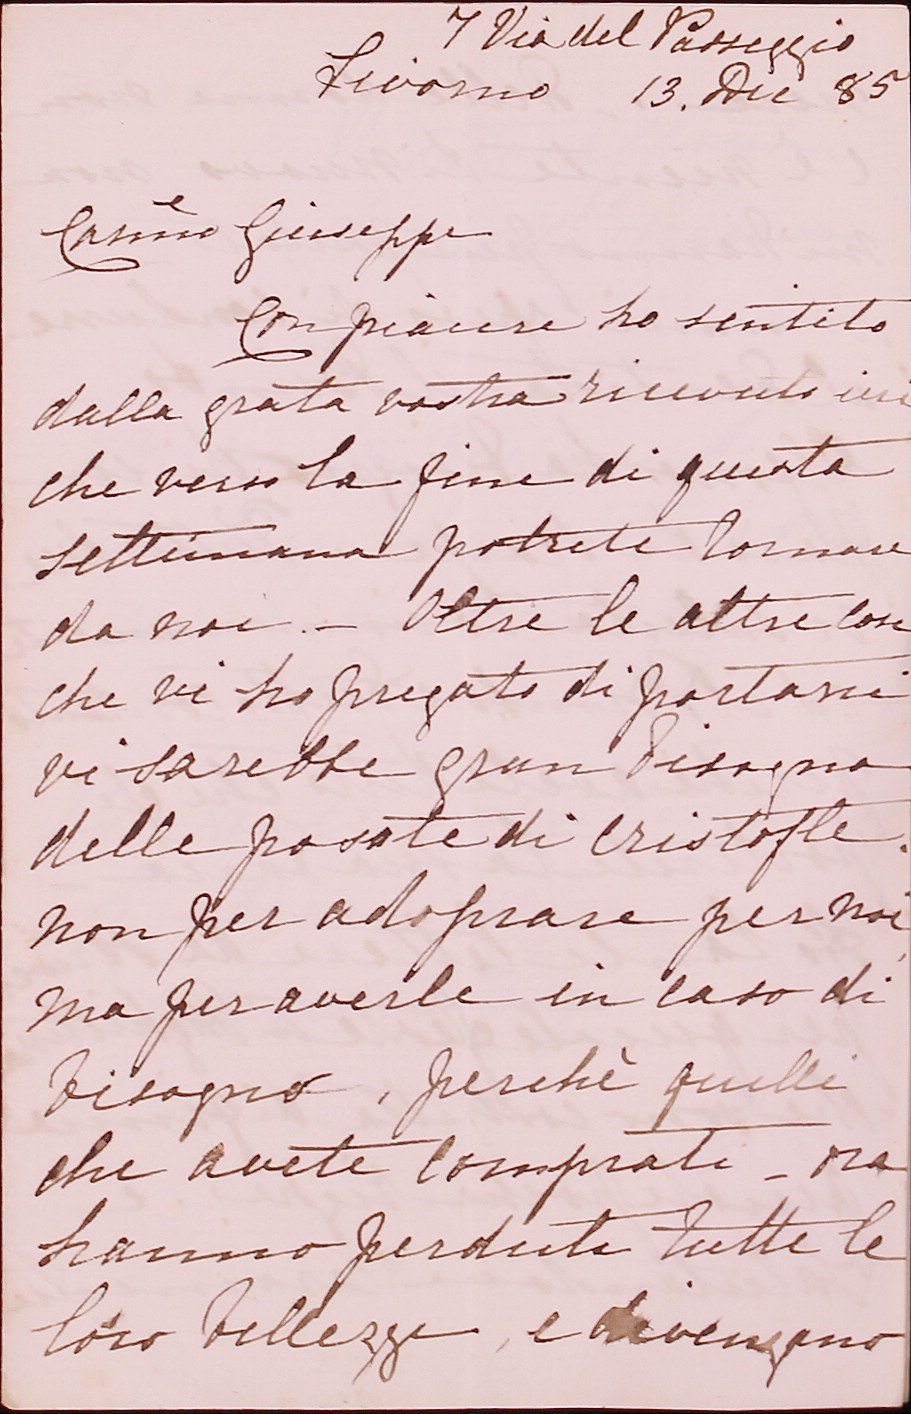 7 Via del Passeggio
Livorno 13. Dic 85
Carm̃o Giuseppe
Con piacere ho sentito
dalla grata vostra ricevuto ieri
che verso la fine di questa
settimana potrete tornare
da noi. – Oltre le altre cose
che vi ho pregato di portarmi
vi sarebbe gran bisogno
delle posate di Cristofle.
non per adoprare per noi,
ma per averle in caso di
bisogno, perchè quelli
che avete comprati – ora
hanno perduti tutte le
loro bellezze, e divengano